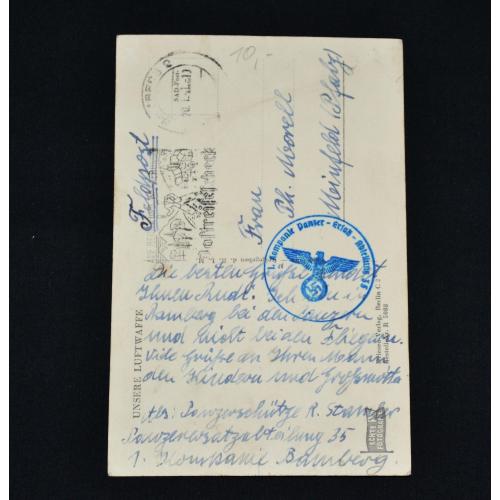 10,-
Feldpost
Postreisescheck
Frau
Ph. Morell
Minfeld (Pfalz)
1. Kompanie Panzer-Ersatz-Abteilung 35
Die besten Grüße sendet
Ihnen Rudi. Ich bin in
Bamberg bei den Panzern
und nicht bei den Fliegern.
Viele Grüße an Ihren Mann
den Kindern und Großmutter
Abs: Panzerschütze R.
Panzerersatzabteilung 35
1. Kompanie Bamberg.
UNSERE LUFTWAFFE
Verlag, Berlin C 2
Bestell-Nr. R
ECHTE
FOTOGRAFIE